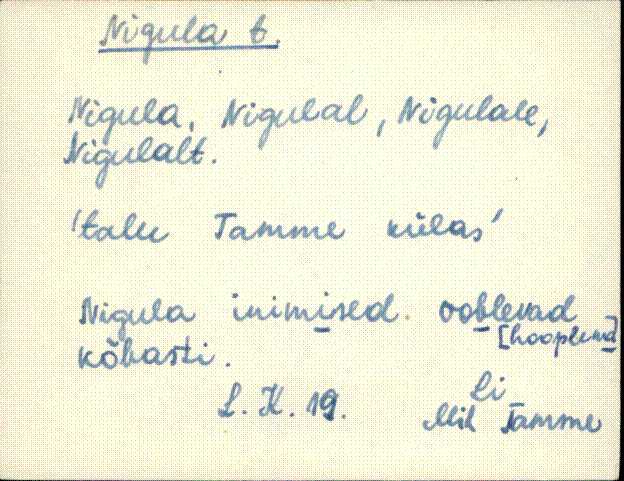 Nigula t.
Nigula, Nigulal, Nigulale,
Nigulalt.
'talu Tamme külas'
Nigula inimised ooblevad
[hooplevad]
kõvasti.
L. K. 19. Li
Mih Tamme